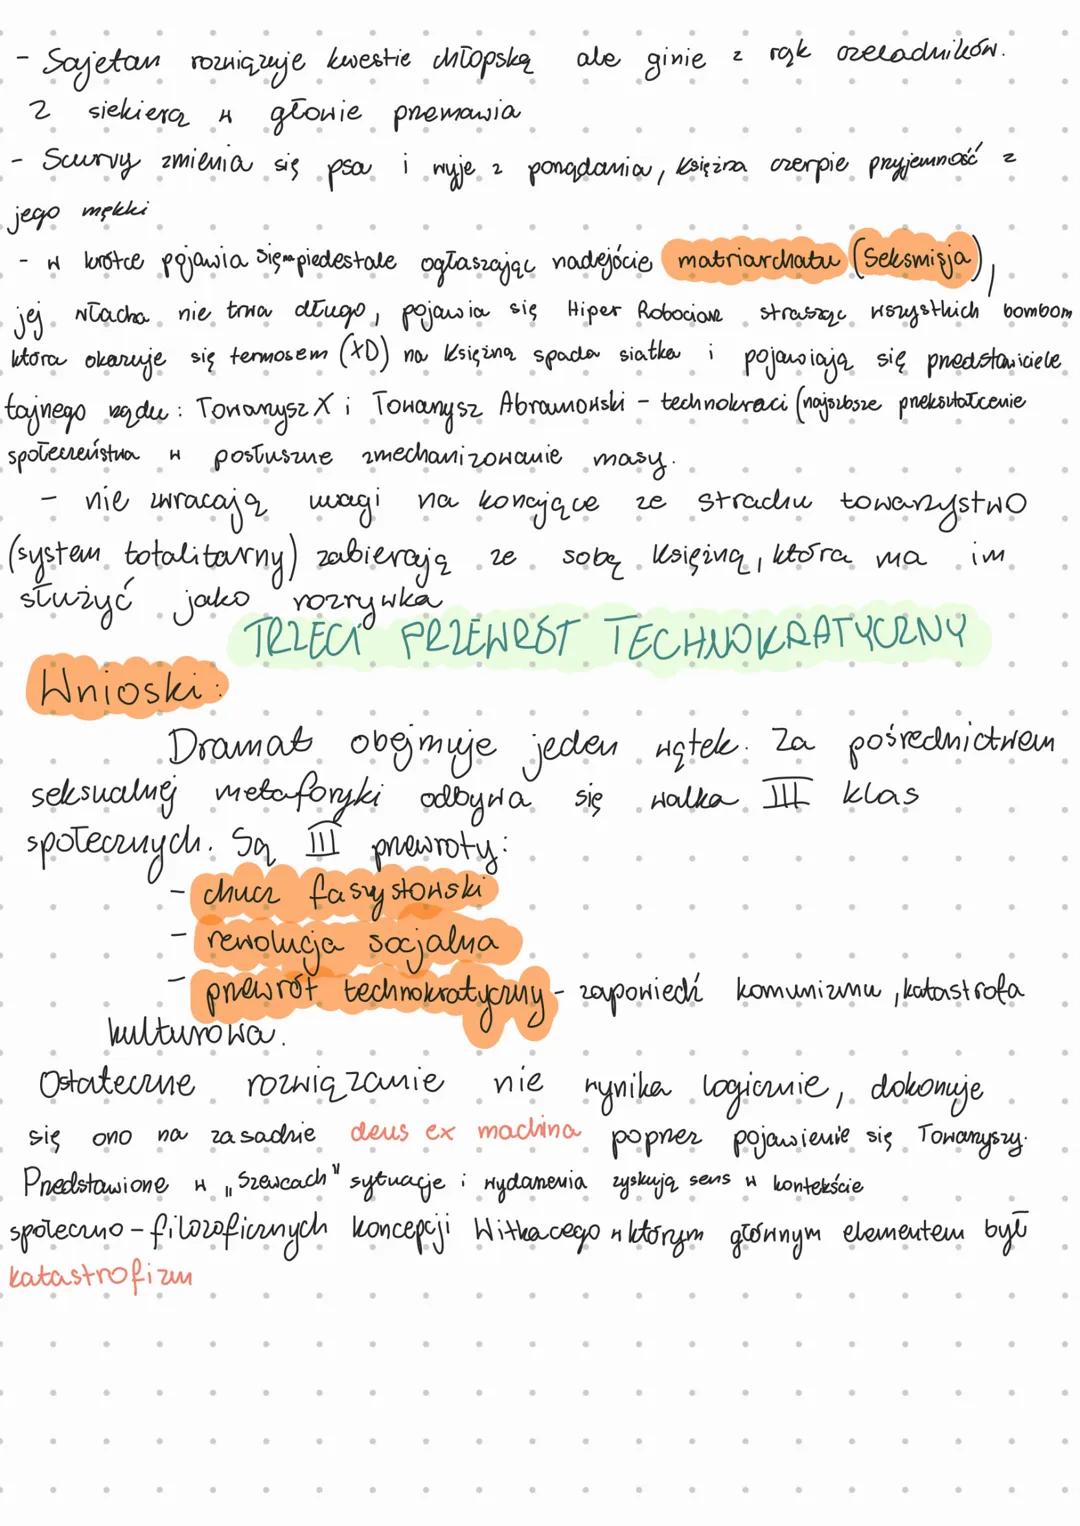 - Sajetan rozwiązuje kwestie chłopską ale ginie z rąk czeladników.
Z siekierą w głowie przemawia
- Scurvy zmienia się psa i wyje z pożądania, księżna czerpie przyjemność z
jego mękki
- w krótce pojawia się na piedestale ogłaszając nadejście matriarchatu (Seksmisja),
jej władza nie trwa długo, pojawia się Hiper Robociarz strasząc wszystkich bombom
która okazuje się termosem (XD) na księżną spada siatka i pojawiają się przedstawiciele
tajnego rządu: Towarzysz X i Towarzysz Abramowski - technokraci (najszybsze przekształcenie
społeczeństwa w posłuszne zmechanizowanie masy.
- nie zwracają uwagi na konające ze strachu towarzystwo
(system totalitarny) zabierają ze sobą Księżną, która ma im
służyć jako rozrywka
TRZECI PRZEWRÓT TECHNOKRATYCZNY
Wnioski:
Dramat obejmuje jeden wątek. Za pośrednictwem
seksualnej metaforyki odbywa się walka III klas
społecznych. Są III przewroty:
- chucz faszystowski
- rewolucja socjalna
- przewrót technokratyczny - zapowiedź komunizmu, katastrofa
kulturowa.
Ostateczne rozwiązanie nie wynika logicznie, dokonuje
się ono na zasadzie deus ex machina poprzez pojawienie się Towarzyszy.
Przedstawione w „Szewcach" sytuacje i wydarzenia zyskują sens w kontekście
społeczno-filozoficznych koncepcji Witkacego w którym głównym elementem był
katastrofizm